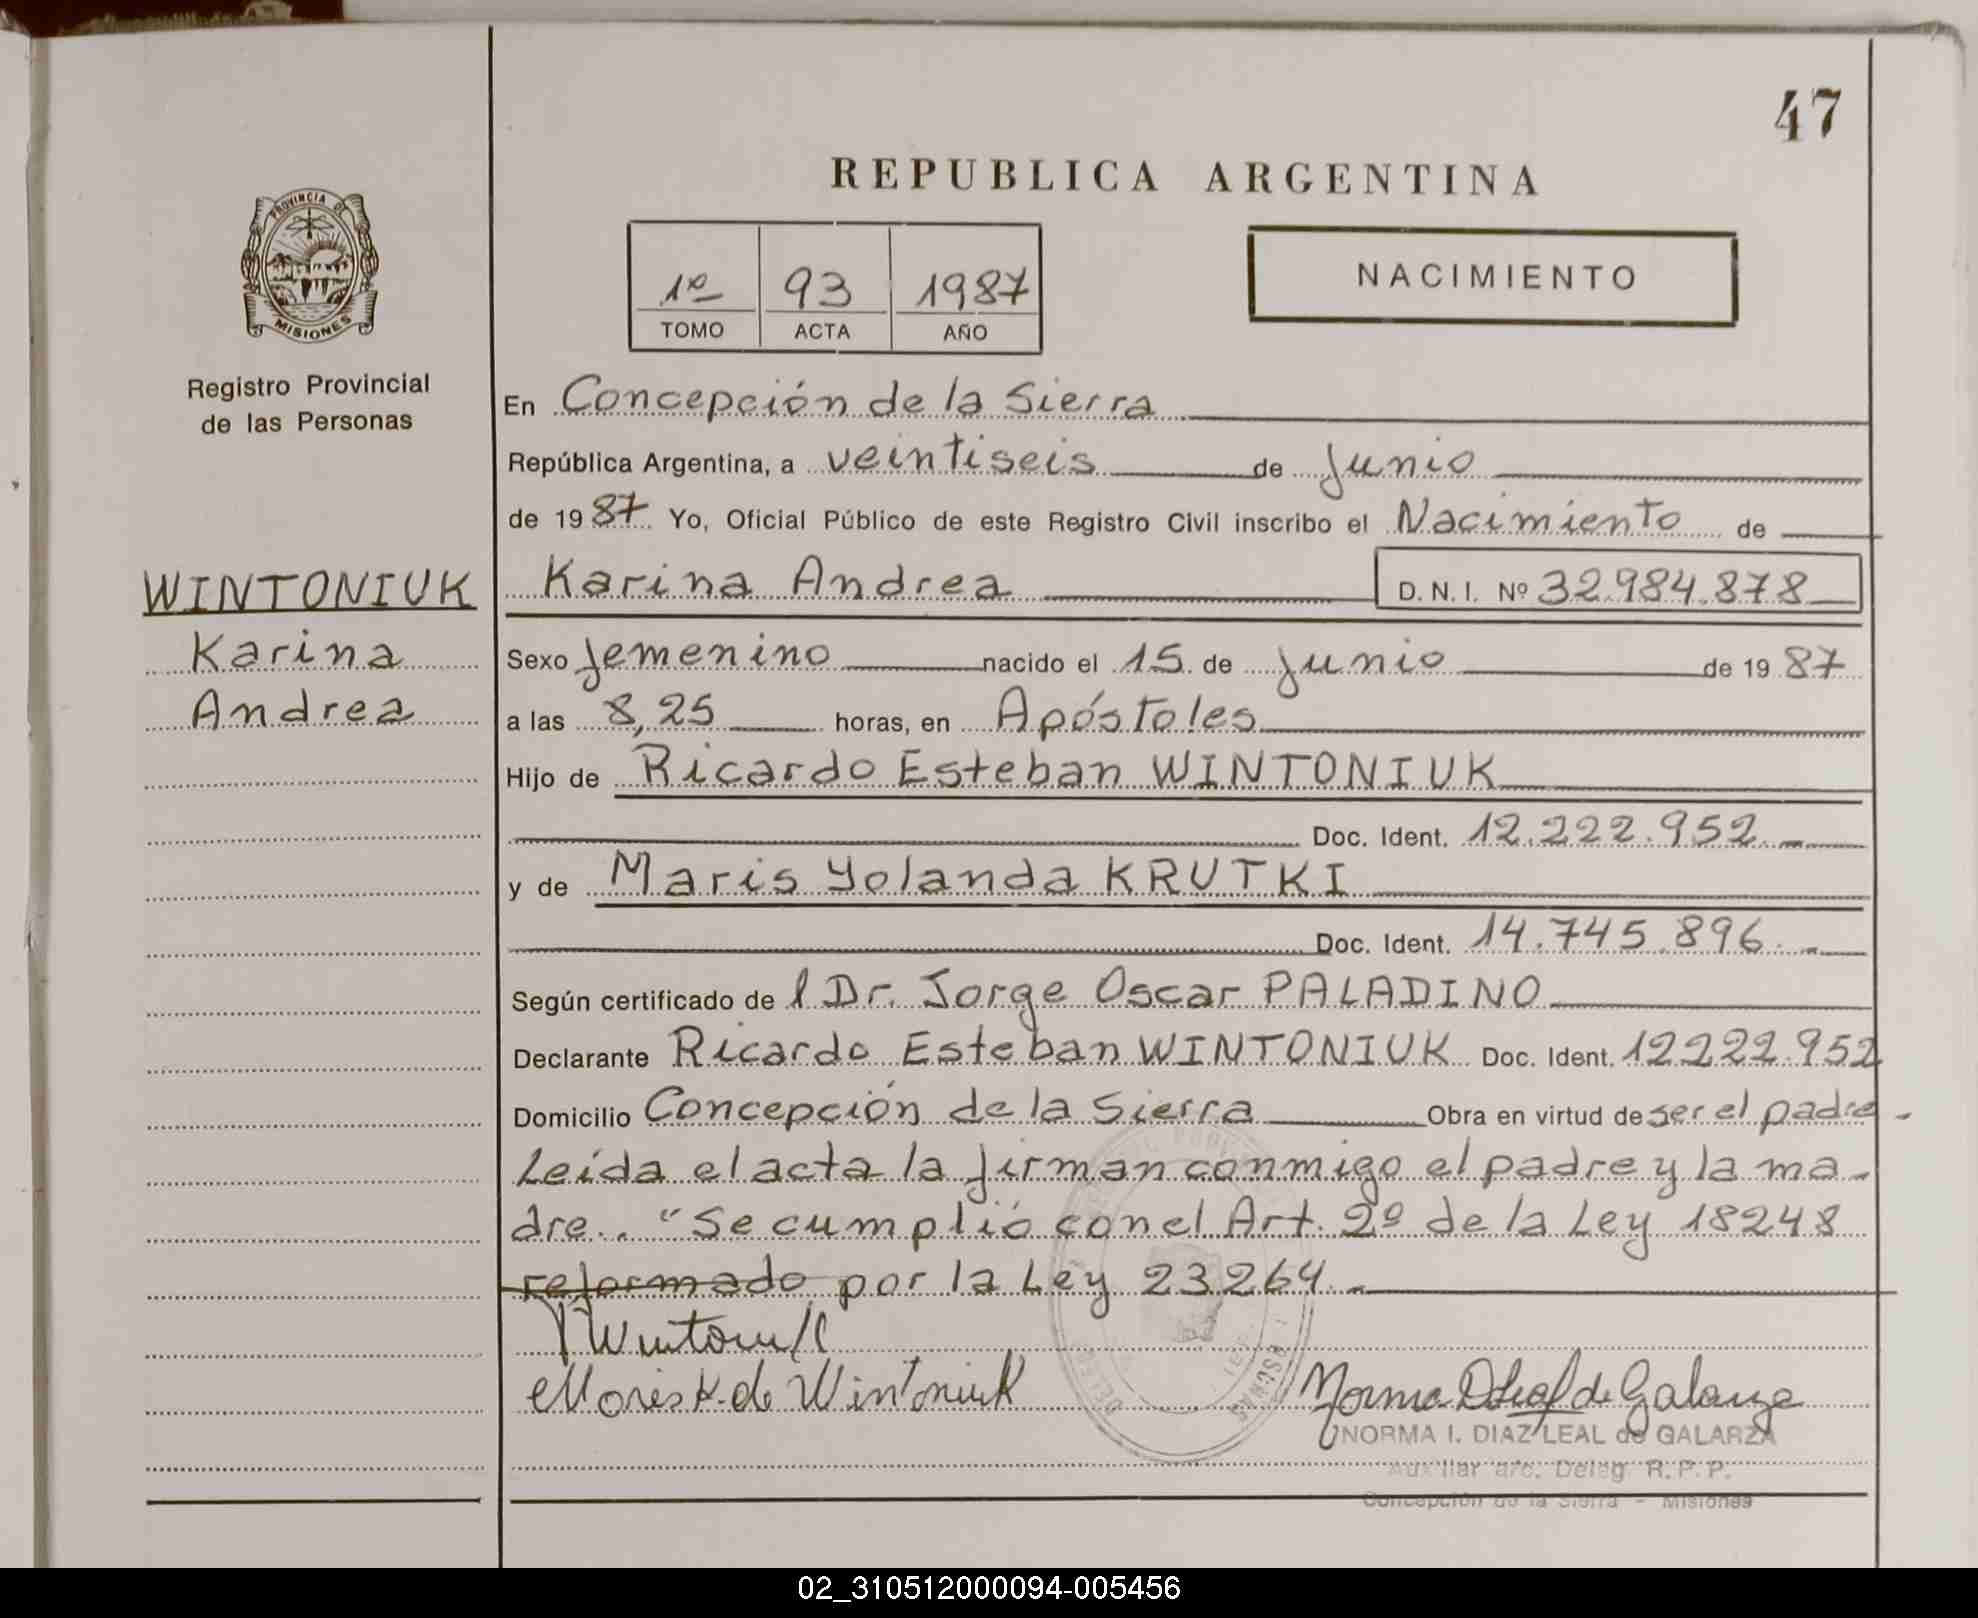 47
REPUBLICA ARGENTINA
PROVINCIA DE
MISIONES
1º 93 1987
TOMO ACTA AÑO
NACIMIENTO
Registro Provincial
de las Personas
En Concepción de la Sierra
República Argentina, a veintiseis de junio
de 1987 Yo, Oficial Público de este Registro Civil inscribo el Nacimiento de
WINTONIUK
Karina
Andrea
Karina Andrea D. N. I. Nº 32.984.878
Sexo femenino nacido el 15 de junio de 1987
a las 8,25 horas, en Apóstoles
Hijo de Ricardo Esteban WINTONIUK
Doc. Ident. 12.222.952
y de Maris Yolanda KRUTKI
Doc. Ident. 14.745.896
Según certificado del Dr. Jorge Oscar PALADINO
Declarante Ricardo Esteban WINTONIUK Doc. Ident. 12.222.952
Domicilio Concepción de la Sierra Obra en virtud de ser el padre.
Leída el acta la firman conmigo el padre y la ma-
dre.. "Se cumplió con el Art. 2º de la Ley 18248
reformado por la Ley 23264.-
Maris K. de Wintoniuk
Norma D Leal de Galarza
NORMA I. DIAZ LEAL de GALARZA
Auxiliar a/c. Deleg. R. P. P.
Concepción de la Sierra - Misiones
02_310512000094-005456